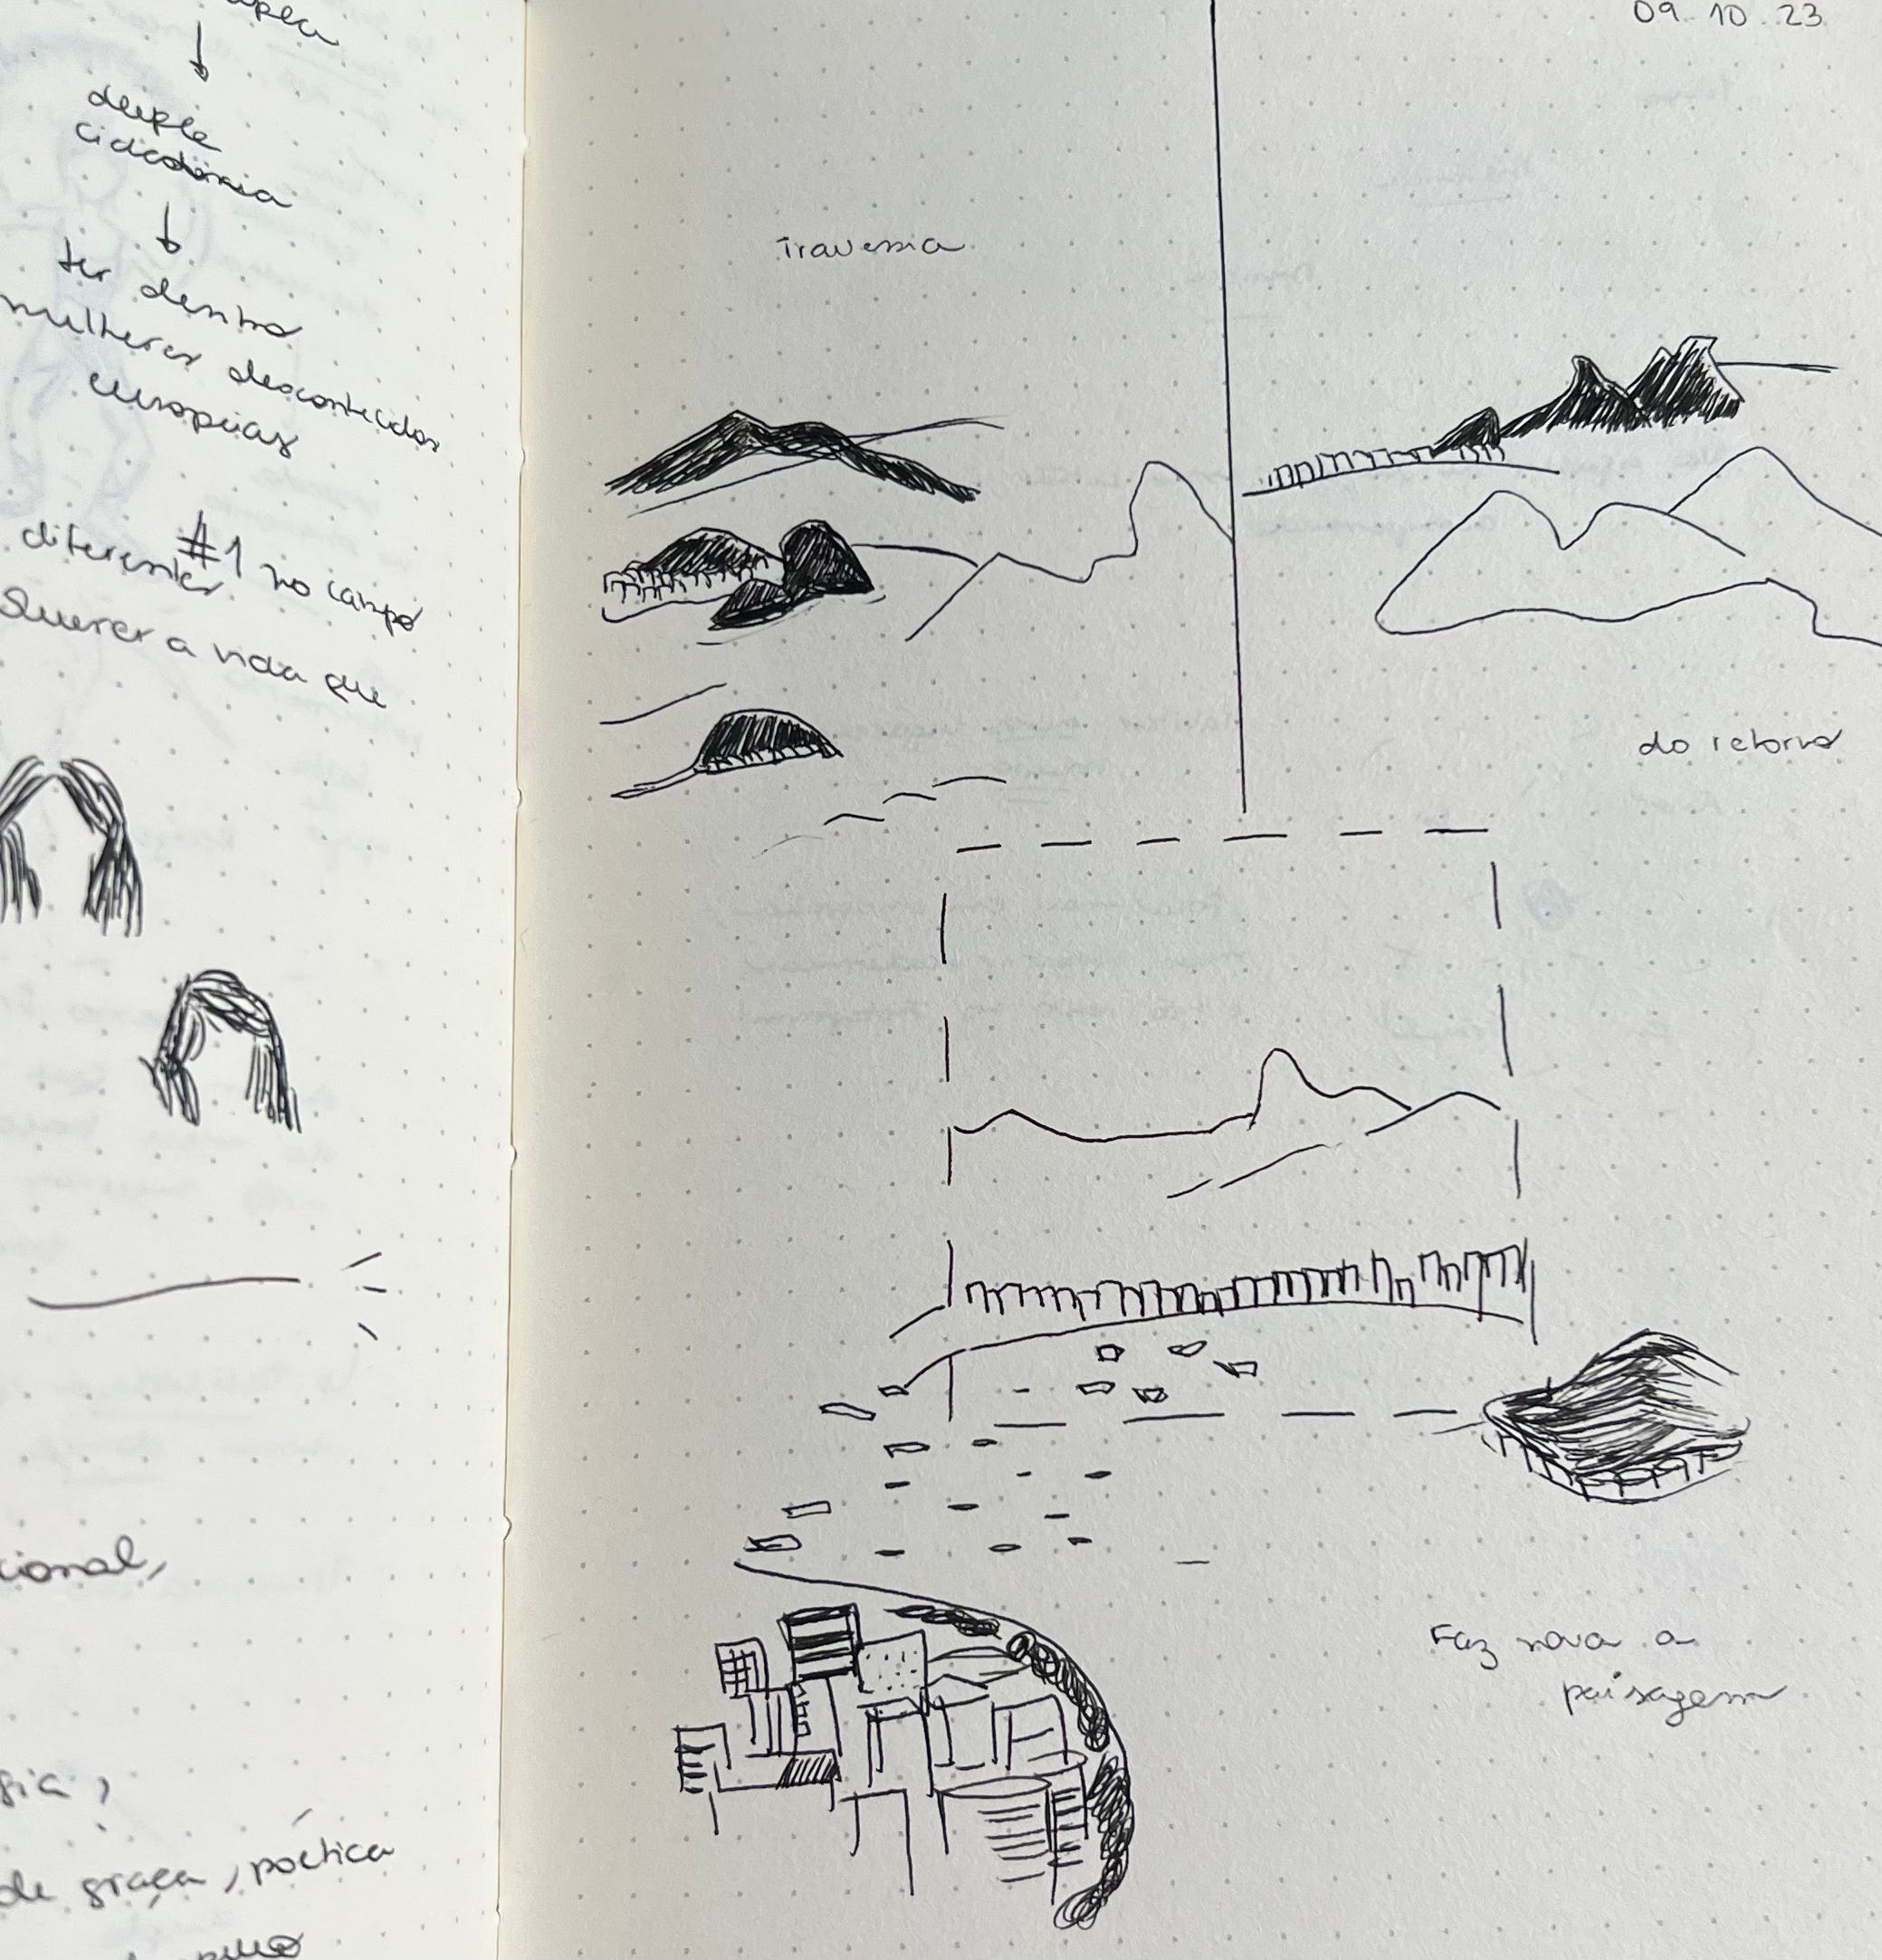 dupla
cidadania
ter dentro
mulheres desconhecidas
europeias
#1 no campo
diferentes
Querer a vida que
cional,
gia,
de graça, poética
09.10.23
Travessia
do retorno
Faz nova a
paisagem